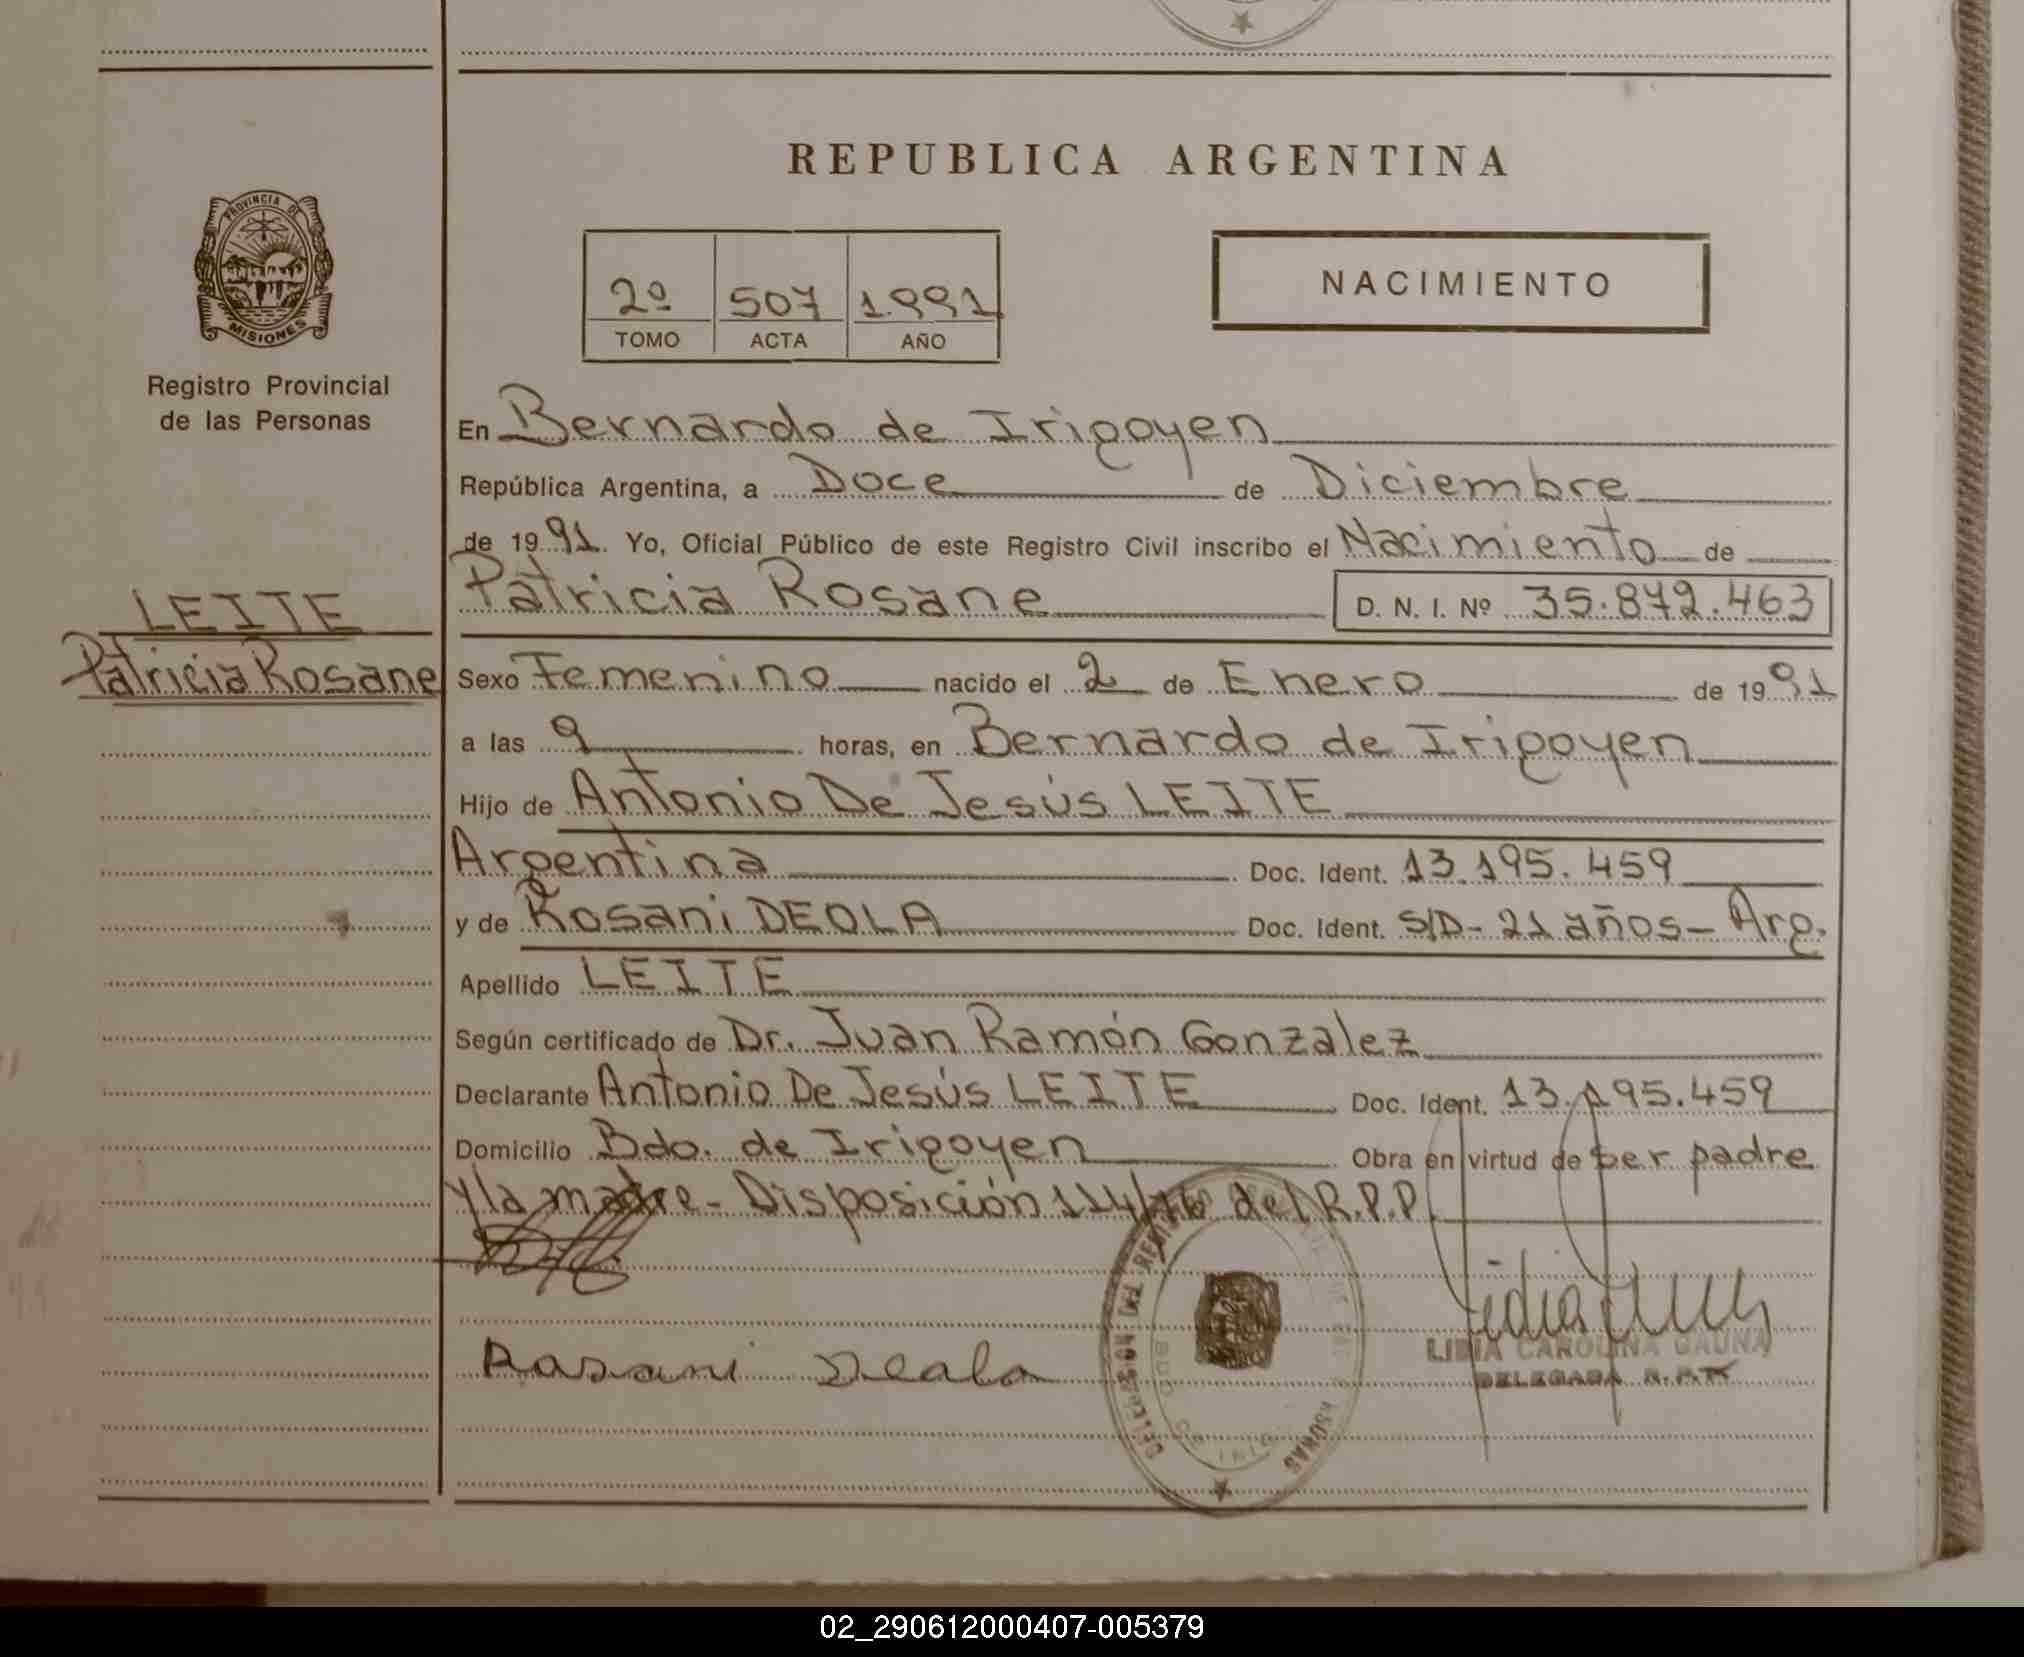 REPUBLICA ARGENTINA
PROVINCIA DE
MISIONES
Registro Provincial
de las Personas
2º 507 1.991
TOMO ACTA AÑO
NACIMIENTO
En Bernardo de Irigoyen
República Argentina, a Doce de Diciembre
de 1991. Yo, Oficial Público de este Registro Civil inscribo el Nacimiento de
Patricia Rosane D. N. I. Nº 35.872.463
LEITE
Patricia Rosane
Sexo Femenino nacido el 2 de Enero de 1991
a las 9 horas, en Bernardo de Irigoyen
Hijo de Antonio De Jesús LEITE
Argentina Doc. Ident. 13.195.459
y de Rosani DEOLA Doc. Ident. S/D- 21 años- Arg.
Apellido LEITE
Según certificado de Dr. Juan Ramón Gonzalez
Declarante Antonio De Jesús LEITE Doc. Ident. 13.195.459
Domicilio Bdo. de Irigoyen Obra en virtud de ser padre
y la madre- Disposición 114/76 del R.P.P.
Rosani Deola
LIDIA CAROLINA GAUNA
DELEGADA R.P.P.
02_290612000407-005379